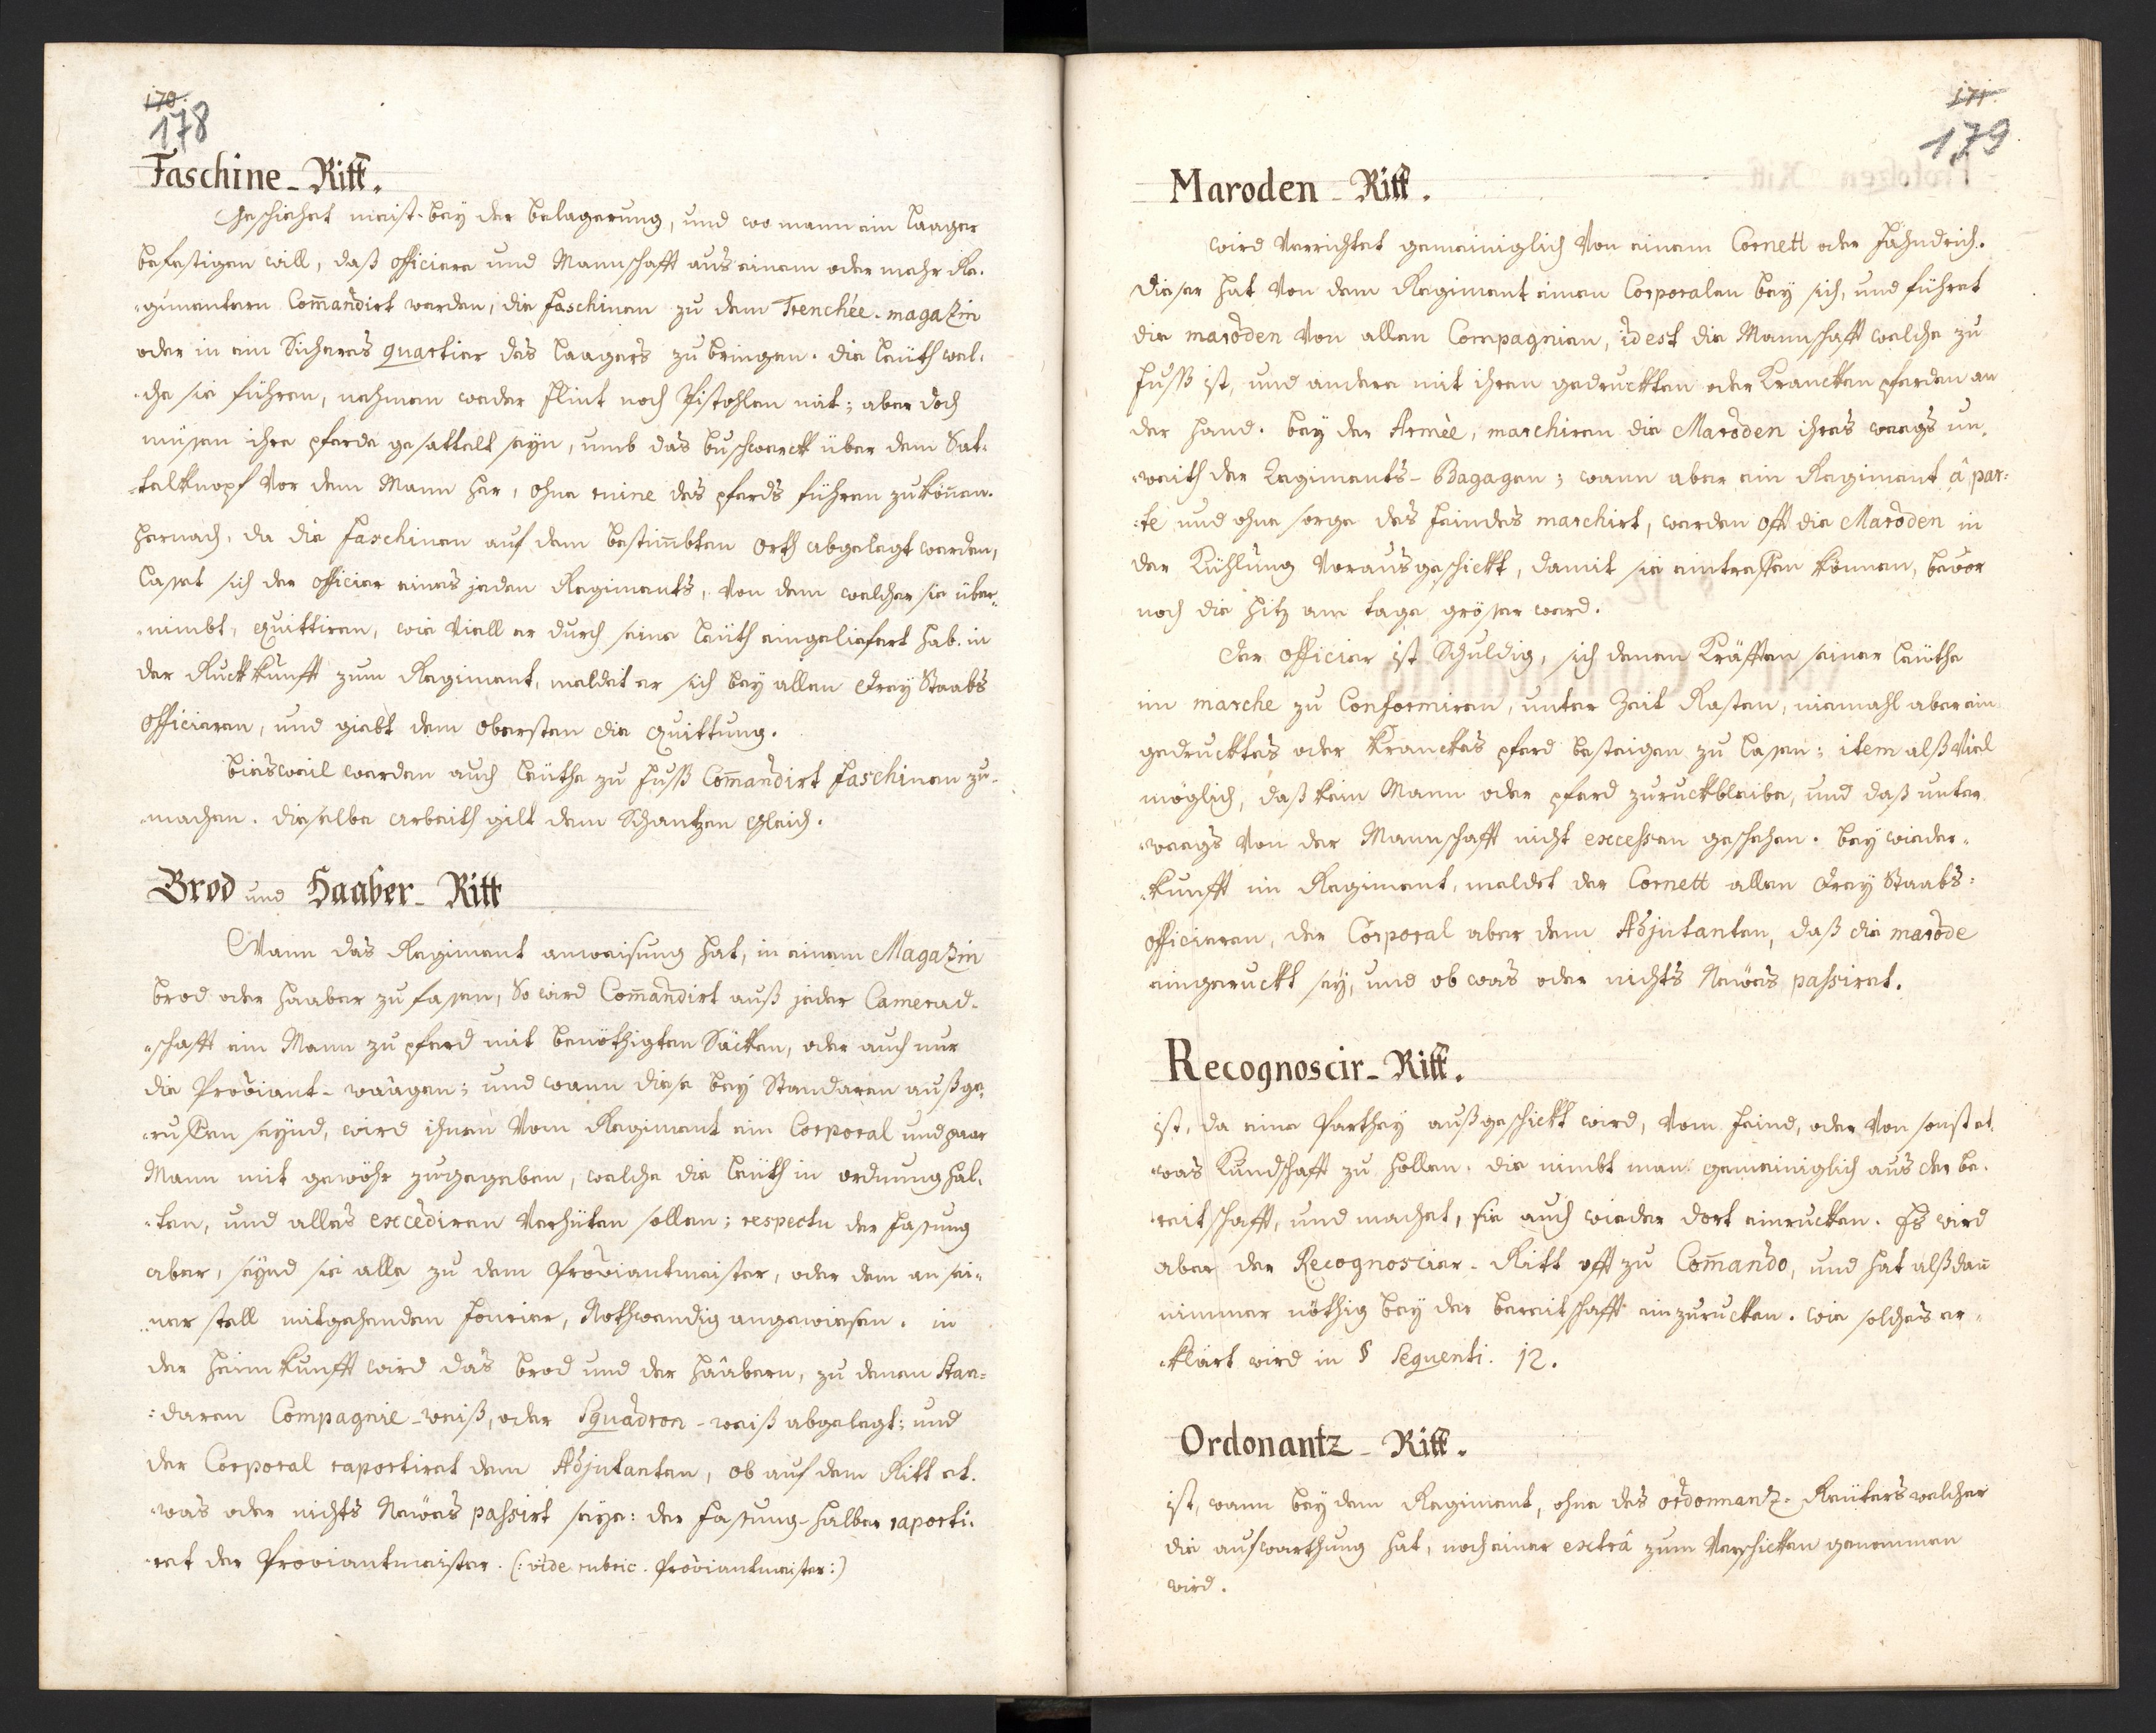 170.
178
Faschine-Ritt.
Geschiehet meist bey der belagerung, und wo mann ein laager
befestigen will, daß officiere und Mannschafft aus einem oder mehr Re-
-gimentern Com̅andirt werden, die faschinen zu dem Trenchée-magaZin
oder in ein Sicheres quartier des laagers zu bringen. die leüth wel-
-che sie führen, nehmen weder flint noch Pistohlen mit; aber doch
müssen ihre pferde gesattelt seyn, umb das buschwerck über dem Sat-
-telknopf vor dem Mann her, ohne ruine des pferds führen zu kön̅en.
hernach, da die faschinen auf dem bestim̅bten orth abgelegt werden,
lasset sich der officier eines jeden Regiments, von dem welcher sie über-
-nimbt, quittiren, wie viell er durch seine leüth eingeliefert hab. in
der Ruckkunfft zum Regiment, meldet er sich bey allen drey Staabs
officieren, und giebt dem obersten die quittung.
bießweil werden auch leüthe zu fuß Com̅andirt faschinen zu-
-machen. dieselbe arbeith gilt dem Schantzen gleich.
Brod und Haaber-Ritt
Wann das Regiment anweisung hat, in einem MagaZin
brod oder haaber zu fassen, So wird Com̅andirt auß jeder Camerad-
-schafft ein Mann zu pferd mit benöthigten Säcken, oder auch nur
die Proviant-wäagen; und wann diese bey Standaren außge-
-ruffen seynd, wird ihnen vom Regiment ein Corporal und paar
Mann mit gewöhr zugegeben, welche die leüth in ordnung hal-
-ten, und alles excediren verhüten sollen; respectu der fassung
aber, seynd sie alle zu dem Proviantmeister, oder dem an sei-
-ner stell mitgehenden fourier, Nothwendig angewiesen. in
der heimkunfft wird das brod und der haabern, zu denen Stan-
:daren Compagnie-weiß, oder Squadron-weiß abgelegt; und
der Corporal raportiret dem Adjutanten, ob auf dem Ritt et-
-was oder nichts Neües passirt seye: der fassung-halber raporti-
-ret der Proviantmeister. (: vide rubric. Proviantmeister:)
171.
179
Maroden-Ritt.
wird verrichtet gemeiniglich von einem Cornett oder fähndrich.
dieser hat von dem Regiment einen Corporalen bey sich, und führet
die maroden von allen Compagnien, id est die Mannschafft welche zu
fuß ist, und andere mit ihren gedruckten oder Krancken pferden an
der hand. bey der Armèe, marchiren die Maroden ihres weegs un-
-weith der Regiments-Bagagen; wann aber ein Regiment â par-
-te und ohne sorge des feindes marchirt, werden offt die Maroden in
der Kühlung vorausgeschickt, damit sie eintreffen können, bevor
noch die hitz am tage grösser werd.
der officier ist Schuldig, sich denen Kräfften seiner leüthe
im marche zu Conformiren, unter Zeit Rasten, niemahl aber ein
gedrucktes oder Kranckes pferd besteigen zu lassen; item alß viel
möglich, daß kein Mann oder pferd zuruckbleibe, und daß unter
weegs von der Mannschafft nicht excessen geschehen. bey wieder-
-kunfft im Regiment, meldet der Cornett allen drey Staabs-
officieren, der Corporal aber dem Adjutanten, daß die marode
eingeruckt sey, und ob was oder nichts Neües passiret.
Recognoscir-Ritt.
ist, da eine Parthey außgeschickt wird, vom feind, oder von sonst et-
was Kundschafft zu hollen. die nimbt man gemeiniglich aus der be-
-reitschafft, und machet, sie auch wieder dort einrucken. Es wird
aber der Recognoscier-Ritt offt zu Com̅ando, und hat alßdan̅
nimmer nöthig bey der bereitschafft einzurucken. wie solches er-
-klärt wird in § sequenti. 12.
Ordonantz-Ritt.
ist, wann bey dem Regiment, ohne des ordonnantz-Reüters welcher
die aufwarthung hat, noch einer extrâ zum verschicken genommen
wird.